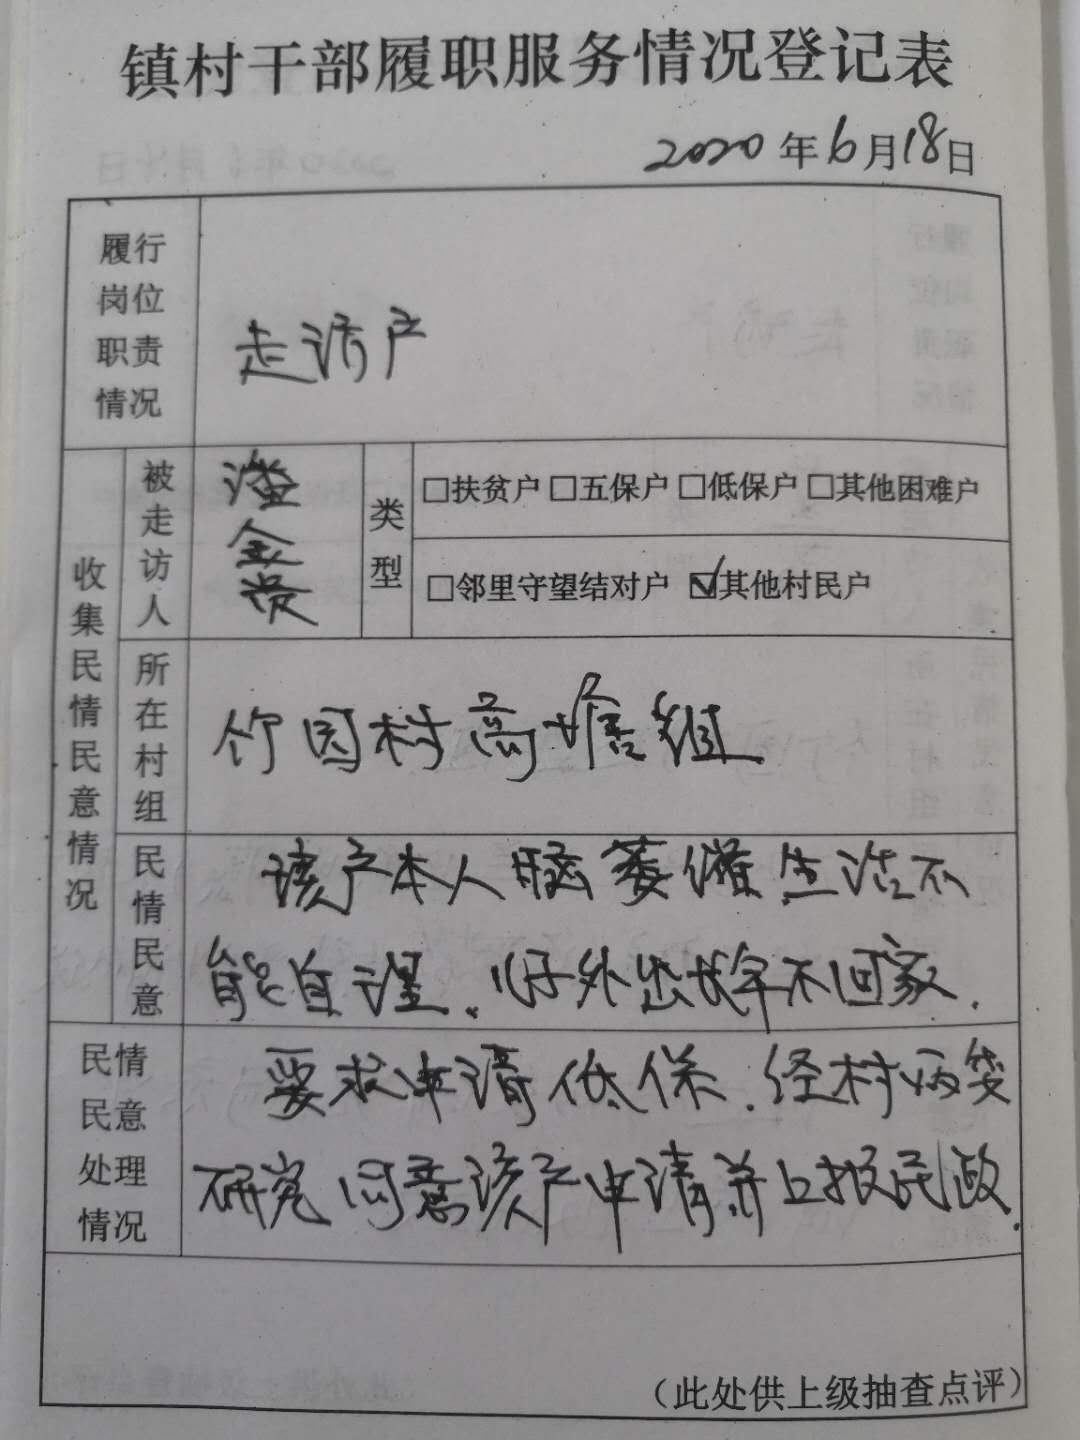 镇村干部履职服务情况登记表
2020年6月18日
履行
岗位
职责
情况
走访户
收集民情民意情况
被走访人
金贵
类型
□扶贫户 □五保户 □低保户 □其他困难户
□邻里守望结对户 ☑其他村民户
所在村组
竹园村高 组
民情民意
该户本人脑萎缩生活不
能自理.儿子外出长年不回家.
民情
民意
处理
情况
要求申请低保.经村两委
研究同意该户申请并上报民政.
(此处供上级抽查点评)